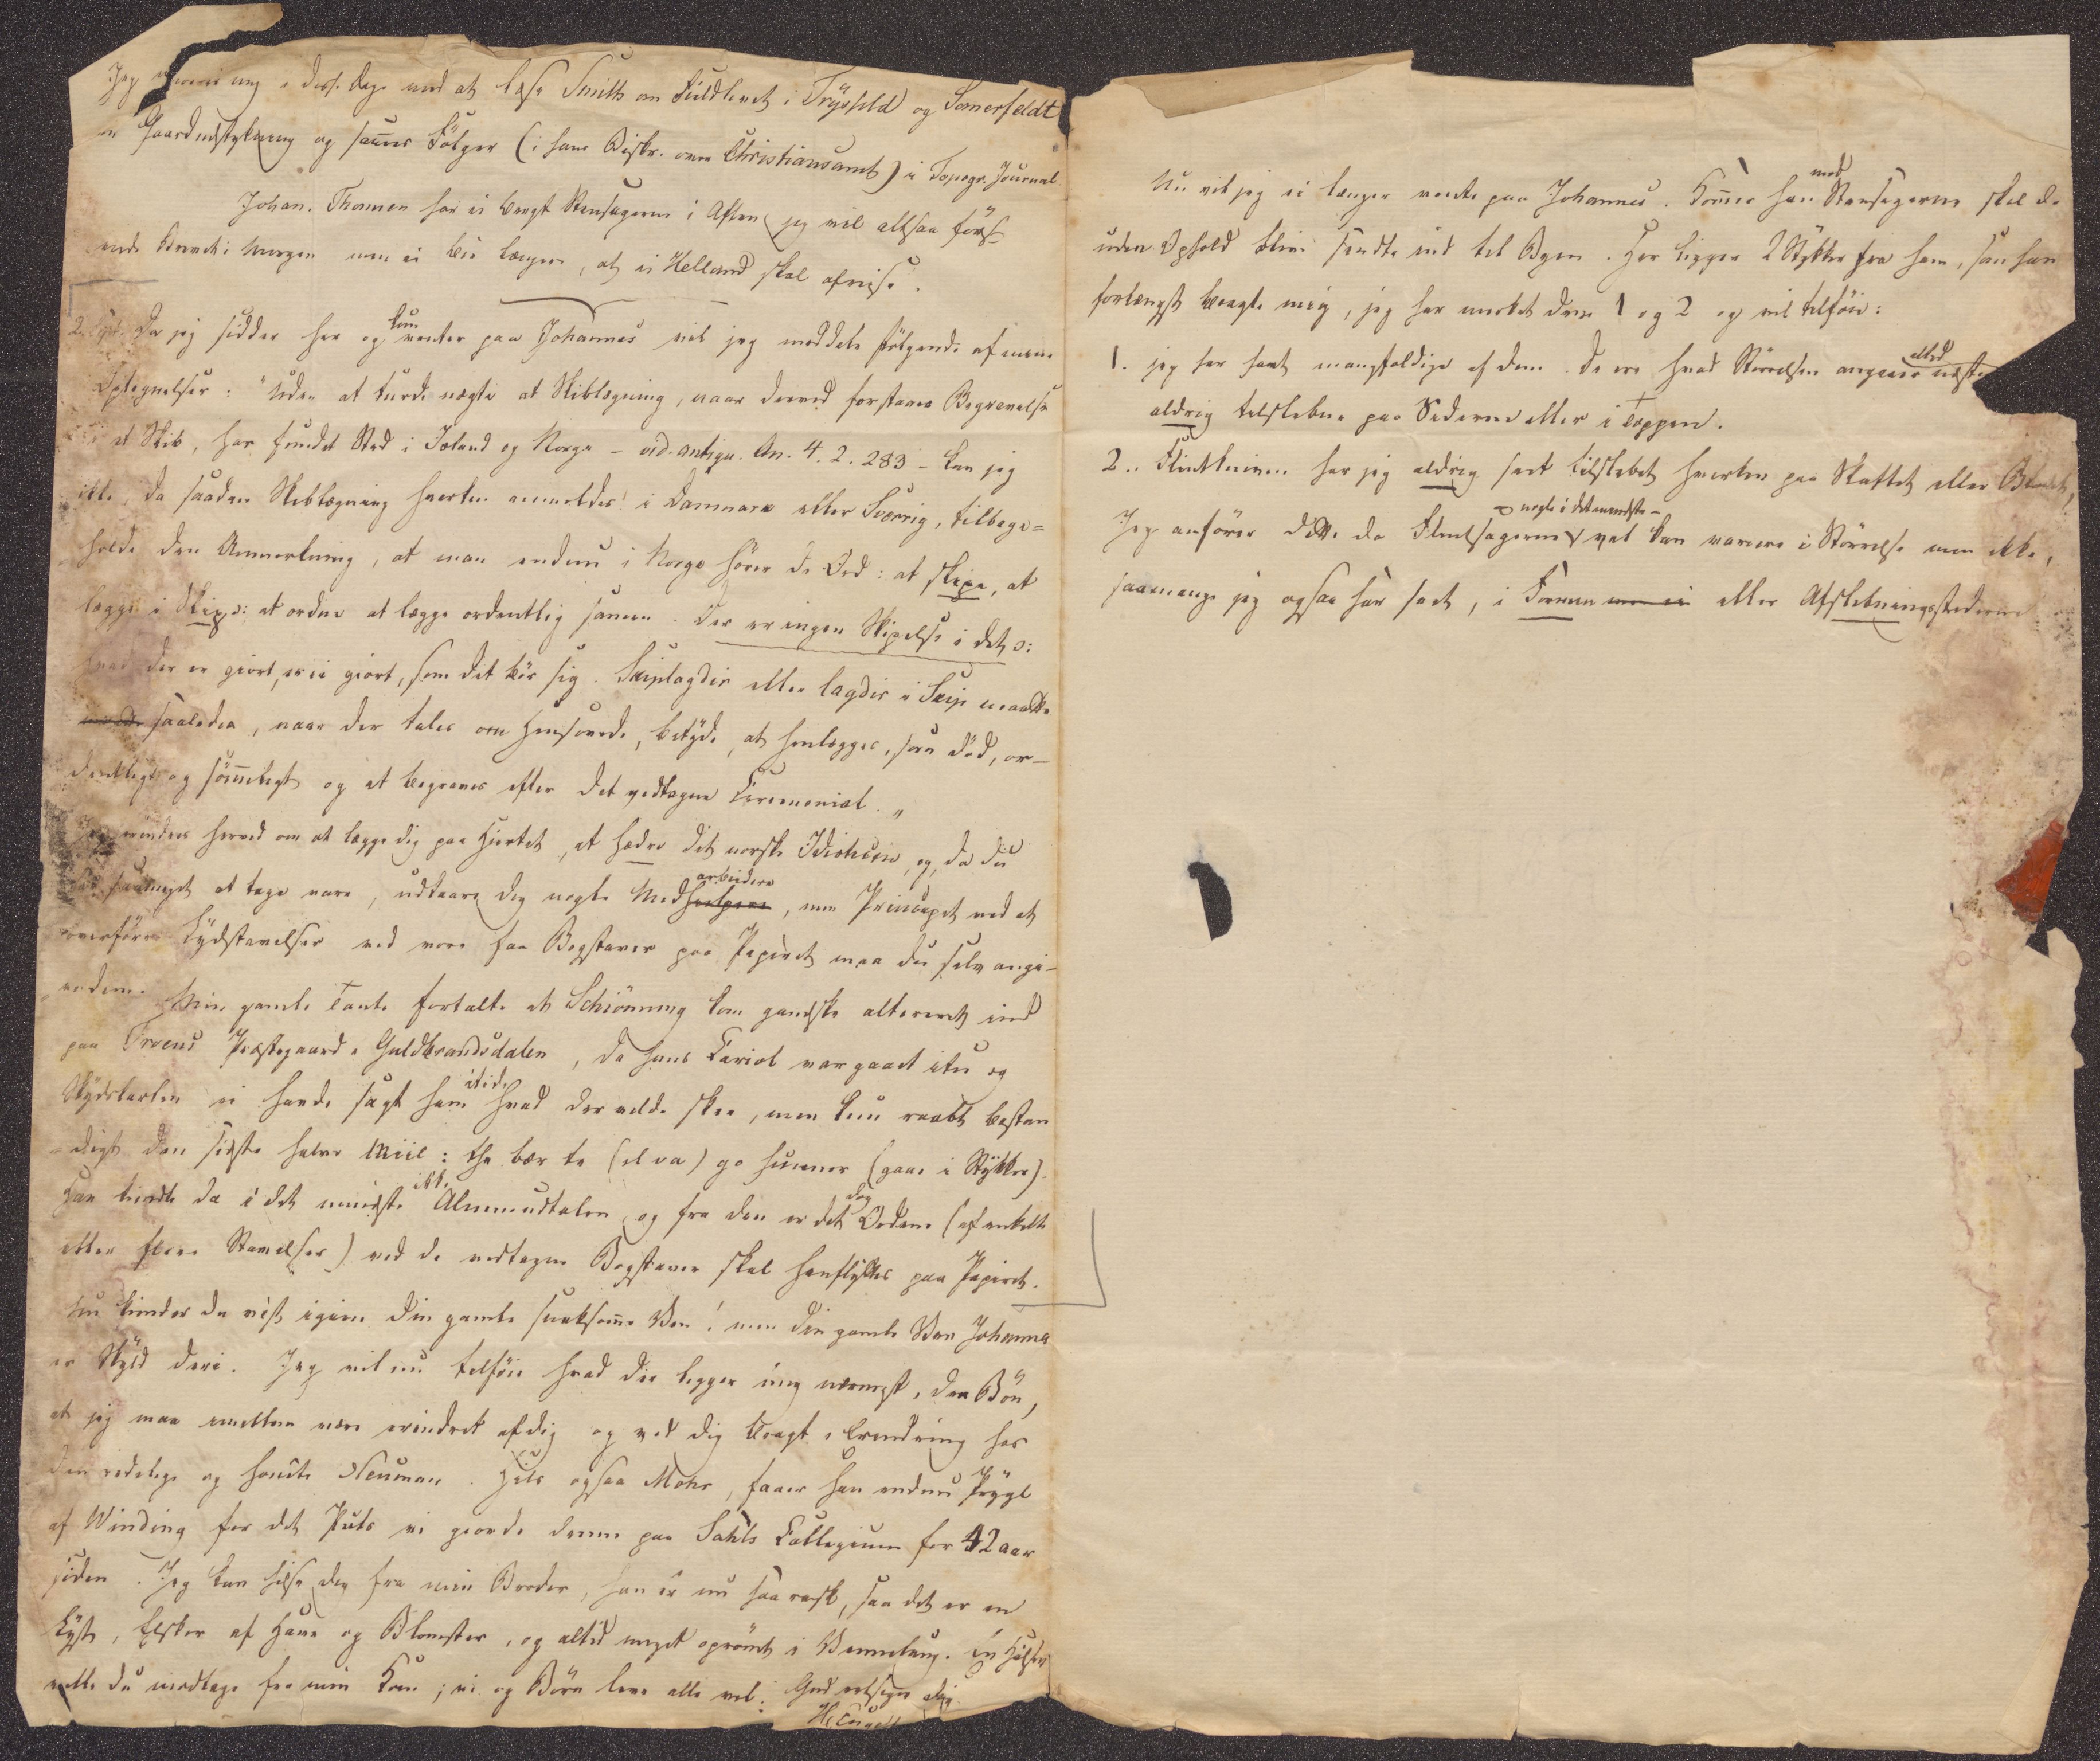 Jeg morer mig i disse Dage med at læse Smith om Fieldlivet i Trysfeld og Somerfeldt
om Gaardudstykning og sammes Følger (i hans Beskr. over Christiansamt) i Topogr. Journal.
Johan. Thomsen har ei bragt Steensagerne i Aften jeg vil altsaa først
sende Brevet i Morgen men ei bie længer, at ei Helland skal afreise.
Da jeg sidder her og kun venter paa Johannes vil jeg meddele følgende af mine
Optegnelser: "Uden at turde nægte at Skiblægning, naar derved forstaaes Begravelse
i et Skib, har fundet Sted i Island og Norge – vid. antiqu. An. 4. 2. 283 – kan jeg
ikke, da saadan Skiblægning hverken anmeldes i Danmark eller Sverrig, tilbage=
holde den Anmerkning, at man endnu i Norge hører de Ord: at skipe, at
lægge i Skip ɔ: at ordne at lægge ordentlig sammen. Der er ingen Skipelse i det ɔ:
hvad der er giort, er ei giort, som det bør sig. Skiplagdir eller lagdir i Skip maatte
saaledes, naar der tales om Hensovede, betyde, at henlægges, som død, or-
dentligt og sømmeligt og at begraves efter det vedtagne Ceremoniel."
Jeg mindes herved om at lægge dig paa Hiertet, at hædre dit norske Idioticon, og, da du
har saameget at tage vare, udkaare dig nogle Medarbeidere, men Principet ved at
overføre Lydstavelser ved vore faa Bogstaver paa Papiret maa du selv angi-
ve dem. Min gamle Tante fortalte at Schiönning kom gandske altereret ind
paa Froens Præstegaard i Guldbrandsdalen, da hans Cariol var gaaet itu og
Skydskarlen ei havde sagt ham itide hvad der vilde skee, men kun raabt bestan
-digt den sidste halve Miil: the bær te (el va) go sunner (gaae i Stykker).
Han kiendte da i det mindste ikke Almueudtalen, og fra den er det dog Ordene (af enkelte
eller flere Stavelser) ved de vedtagne Bogstaver skal henflyttes paa Papiret.
Nu kiender du vist igien din gamle snaksomme Ven! men din gamle Ven Johannes
er Skyld deri. Jeg vil nu tilføie hvad der ligger mig nærmest, den Bøn,
at jeg maa imellem være erindret af dig og ved dig bragt i Erindring hos
den redelige og honette Neuman. Hils ogsaa Mohr, faaer han endnu Prygl
af Winding for det Puds vi giorde denne paa Sahls Collegium for 42 aar
siden. Jeg kan hilse dig fra min Broder, han er nu saa rask, saa det er en
Lyst, Elsker af Have og Blomster, og altid meget oprømt i Vennelaug. En Hilsen
ville du modtage fra min Kone; vi og Børn leve alle vel. Gud velsigne dig.
Nu vil jeg ei længer vente paa Johannes. Kommer han med Steensagerne skal de
uden Ophold blive sendte ind til Byen. Her ligger 2 Stykker fra ham, som han
forlængst bragte mig, jeg har merket dem 1 og 2 og vil tilføie:
1. jeg har seet mangfoldige af dem. De ere hvad Størrelsen angaaer altid næsten
aldrig tilslebne paa Siderne eller i Toppen.
2.. Flintkniven har jeg aldrig seet tilslebet hverken paa Skaftet eller Bladet,
Jeg anfører dette da Flintsagerne – nogle i det mindste – vel kan variere i Størrelse men ikke,
saamange jeg ogsaa har seet, i Formen men ei eller Afslebningsstederne